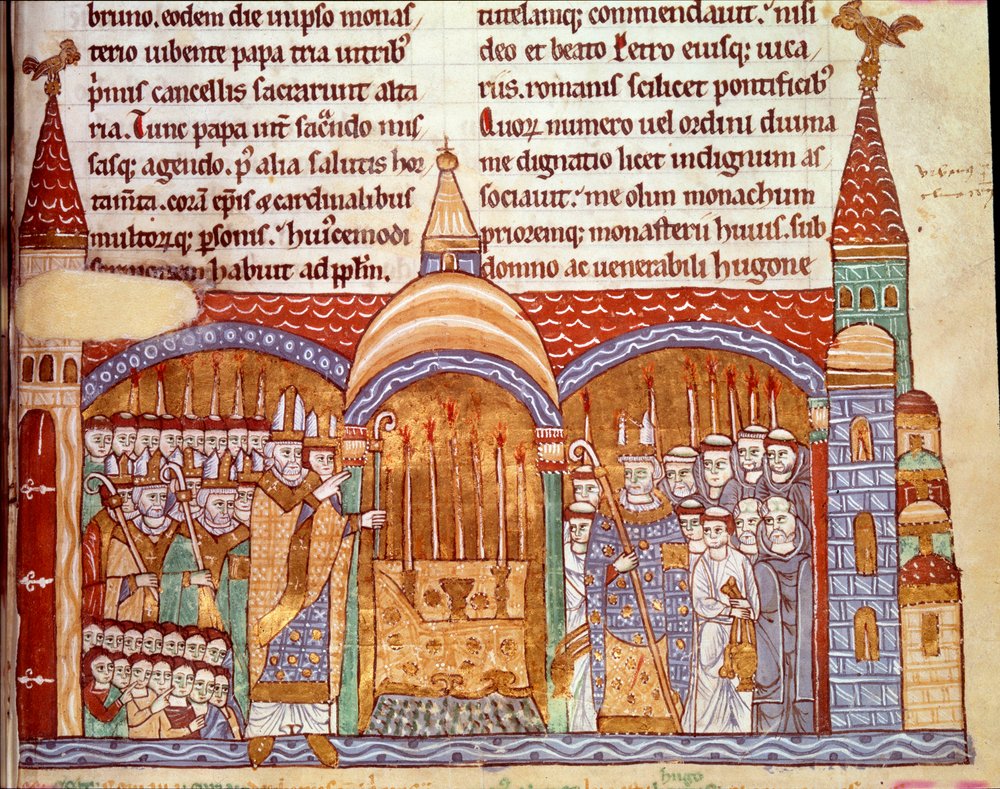 bruno. eodem die in ipso monas/
terio iubente papa tria in trib'
p̃mis cancellis sacrarunt alta
ria. Tunc papa int̃ sac̃ando mis/
sasq; agendo. p̃ alia salutis hor/
tam̃ta. corã ep̃is & cardinalibus
multorq; p̃sonis. hui'cemodi
sermonem habuit ad pp̃lm̃.
tutelamq; commendauit. nisi
deo et beato Petro eiusq; uica/
riis. romanis scilicet pontificib'
Quoꝝ numero uel ordini diuina
me dignatio licet indignum as/
sociauit. me olim monachum
prioremq; monasterii huius. sub
domno ac uenerabili hugone
hugo